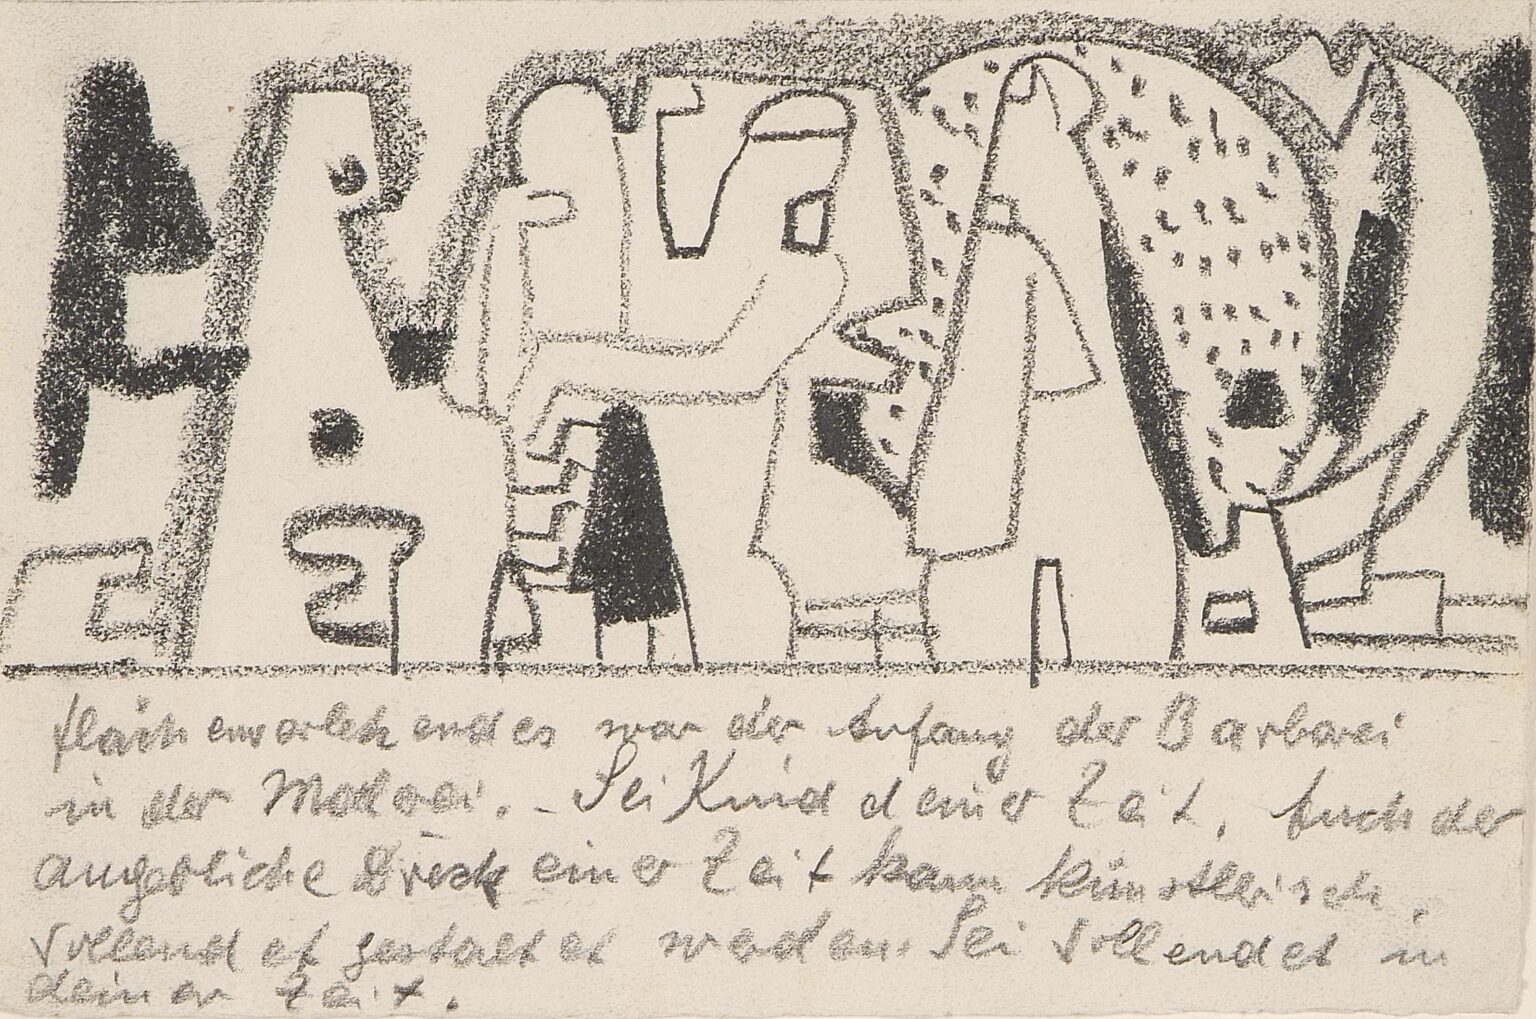 flächenverletzendes war der Anfang der Barbarei
in der Malerei. – Sei Kind deiner Zeit, Auch der
angebliche Dreck einer Zeit kann künstlerisch
vollendet gestaltet werden. Sei vollendet in
deiner Zeit.